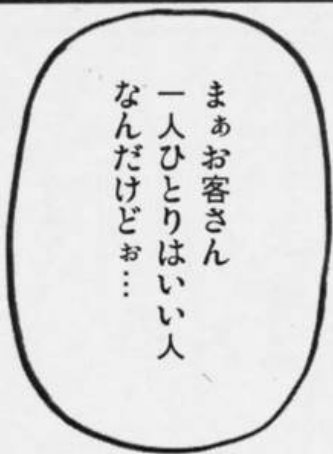 まぁお客さん
一人ひとりはいい人
なんだけどぉ…